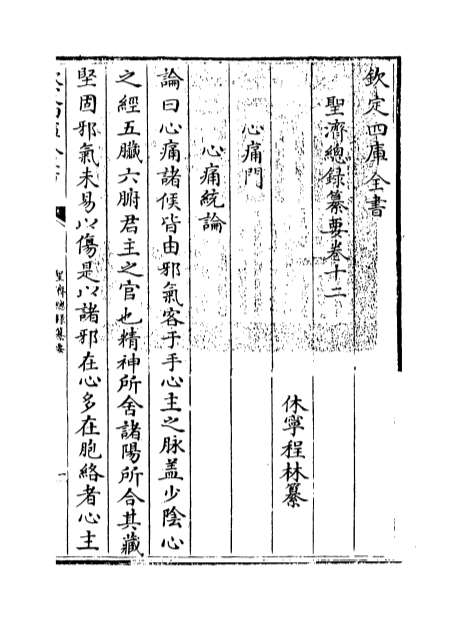 欽定四庫全書
聖濟總錄纂要卷十二
休寧程林纂
心痛門
心痛統論
論曰心痛諸候皆由邪氣客于手心主之脉盖少隂心
之經五臟六腑君主之官也精神所舍諸陽所合其臟
堅固邪氣未易以傷是以諸邪在心多在胞絡者心主
聖濟總録纂要
一